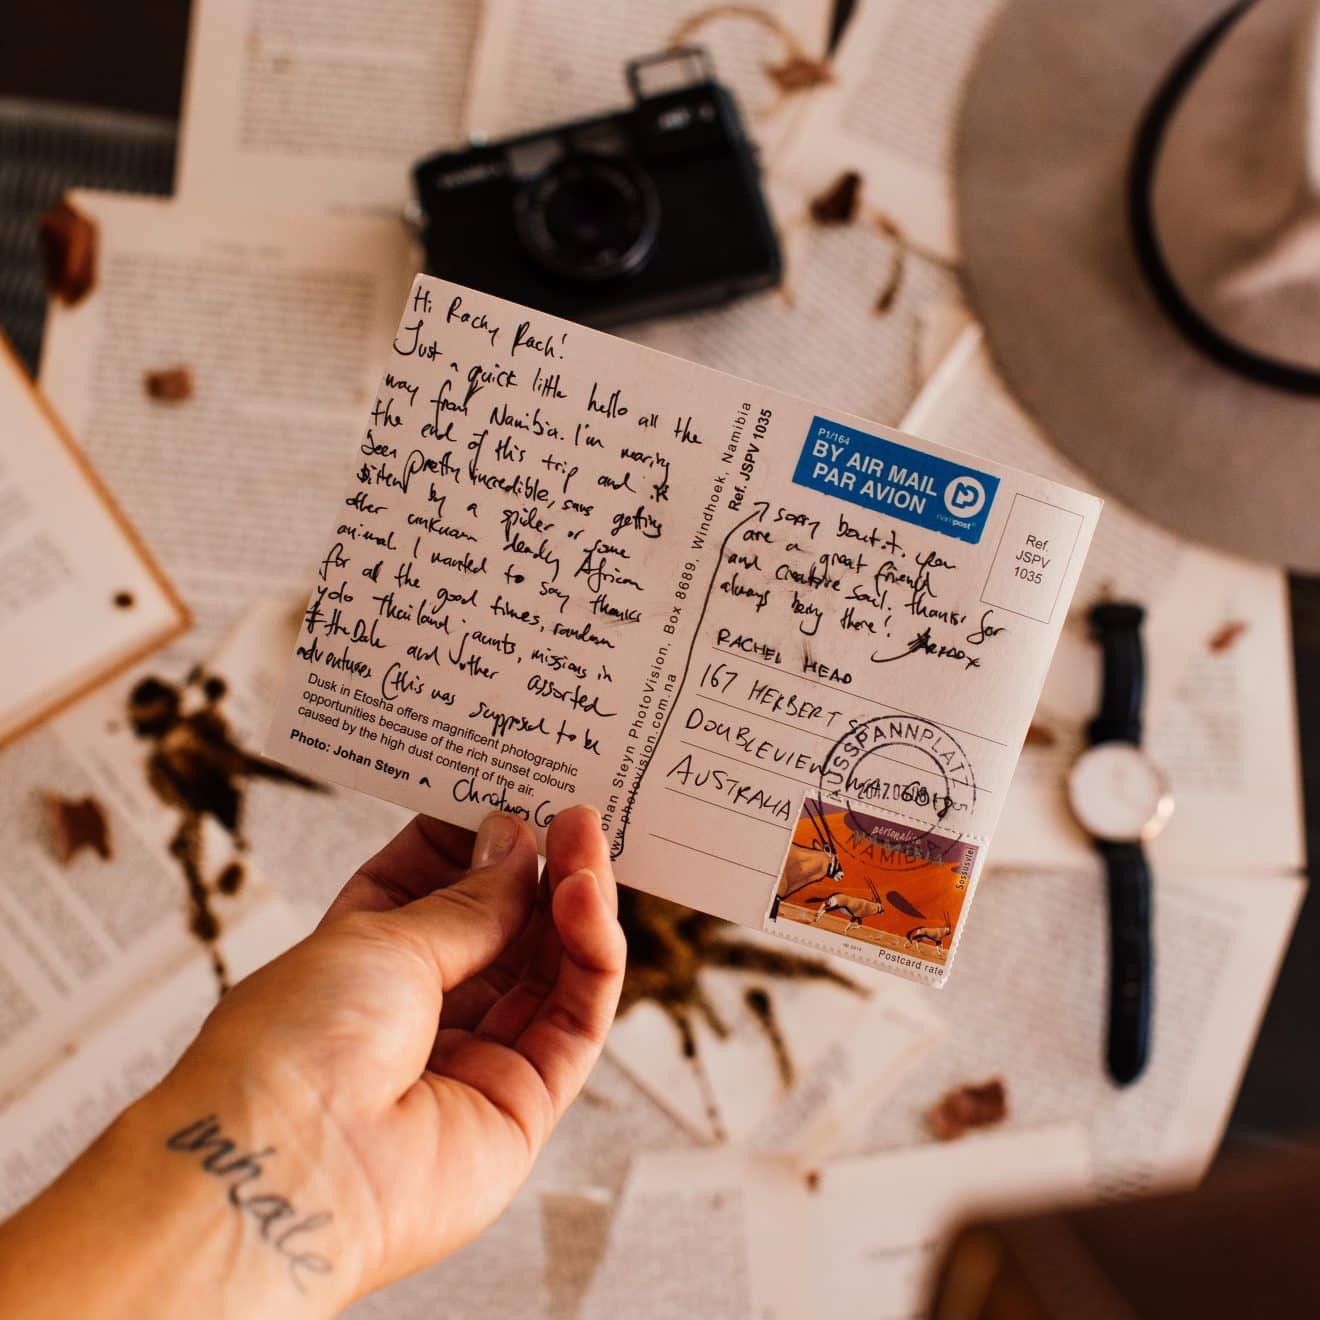 Hi Rachy Rach!
Just a quick little hello all the
way from Namibia. I'm nearing
the end of this trip and it's
been pretty incredible, save getting
bitten by a spider or some
other unknown deadly African
animal. I wanted to say thanks
for all the good times, random
yolo Thailand jaunts, missions in
the Dale and other assorted
adventures (this was supposed to be
a Christmas
Dusk in Etosha offers magnificent photographic
opportunities because of the rich sunset colours
caused by the high dust content of the air.
Photo: Johan Steyn
Johan Steyn PhotoVision, Box 8689, Windhoek, Namibia
www.photovision.com.na
Ref. JSPV 1035
P1/164
BY AIR MAIL
PAR AVION
nampost
Ref.
JSPV
1035
sorry bout it. you
are a great friend
and creative soul. thanks for
always being there!
RACHEL HEAD
167 HERBERT ST
DOUBLEVIEW WA 6018
AUSTRALIA
AUSSPANNPLATZ
NAMIBIA
personalise
Sossusvlei
Postcard rate
inhale